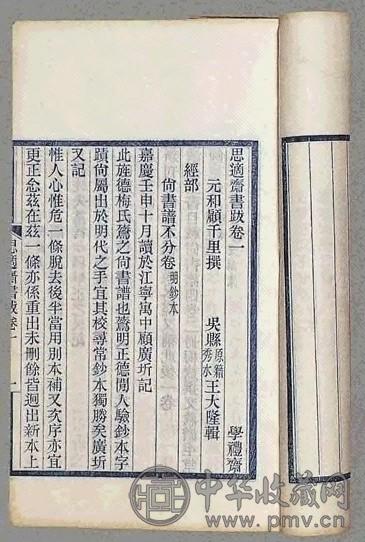 思適齋書跋卷一
學禮齋
元和顧千里撰
吳縣原籍秀水王大隆輯
經部
尙書譜不分卷明鈔本
嘉慶壬申十月讀於江寧寓中顧廣圻記
此旌德梅氏鷟之尙書譜也鷟明正德閒人驗鈔本字
蹟尙屬出於明代之手宜其校尋常鈔本獨勝矣廣圻
又記
惟人心惟危一條脫去後半當用別本補又次序亦宜
更正念茲在茲一條亦係重出未刪餘皆迥出新本上
思適齋書跋卷一
一
中华收藏网
www.pmv.cn